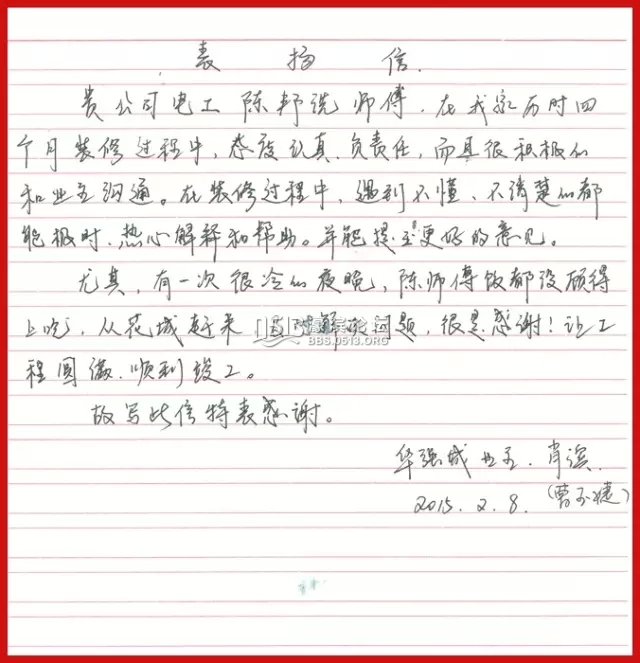 表扬信.
贵公司电工陈邦说师傅.在我家历时四
个月装修过程中,态度认真.负责任,而且很积极的
和业主沟通。在装修过程中,遇到不懂、不清楚的都
能极时.热心解释和帮助。并能提出更好的意见。
尤其,有一次很冷的夜晚,陈师傅饭都没顾得
上吃,从花城赶来 解决问题,很是感谢!让工
程圆满.顺利竣工。
故写此信特表感谢。
华强城业主.肖滨.
2015.2.8.(曹玉婕)
BBS.0513.ORG